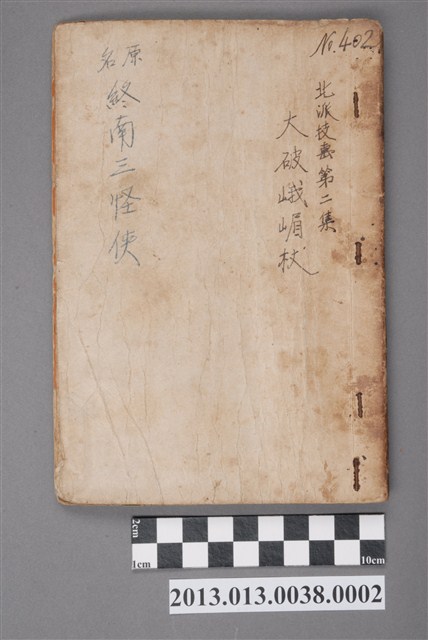 No.402.
北派技藝第二集
大破峨嵋杖
原名
終南三怪俠
2cm
1cm
10cm
2013.013.0038.0002